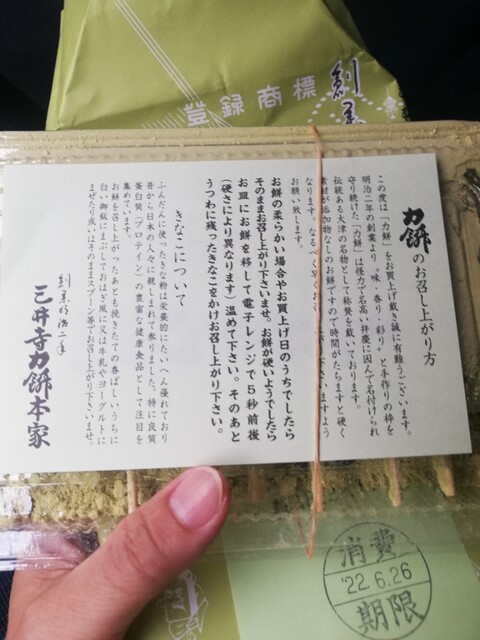 登録商標
創業
力餅のお召し上がり方
この度は「力餅」をお買上げ戴き誠に有難うございます。
明治二年の創業より〝味・香り・彩り〟と手作りの粋を
守り続けた「力餅」は怪力で名高い弁慶に因んで名付けられ
伝統ある大津の名物として称賛を戴いております。
素材が添加物なしのお餅ですので時間がたちますと硬く
なります。なるべく早くお
ますよう
お願い致します。
お餅の柔らかい場合やお買上げ日のうちでしたら
そのままお召し上がり下さいませ。お餅が硬いようでしたら
お皿にお餅を移して電子レンジで5秒前後
(硬さにより異なります)温めて下さい。そのあと
うつわに残ったきなこをかけお召し上がり下さい。
きなこについて
ふんだんに使ったきな粉は栄養的にたいへん優れており
昔から日本の人々に親しまれて参りました。特に良質
蛋白質(プロテイン)の豊富な健康食品として注目を
集めています。
お餅を召し上がったあとも挽きたての香ばしいうちに
白い御飯にまぶしておはぎ風に又は牛乳やヨーグルトに
まぜたり或いはそのままスプーン等でお召し上がり下さいませ。
創業明治二年
三井寺力餅本家
消費
'22.6.26
期限